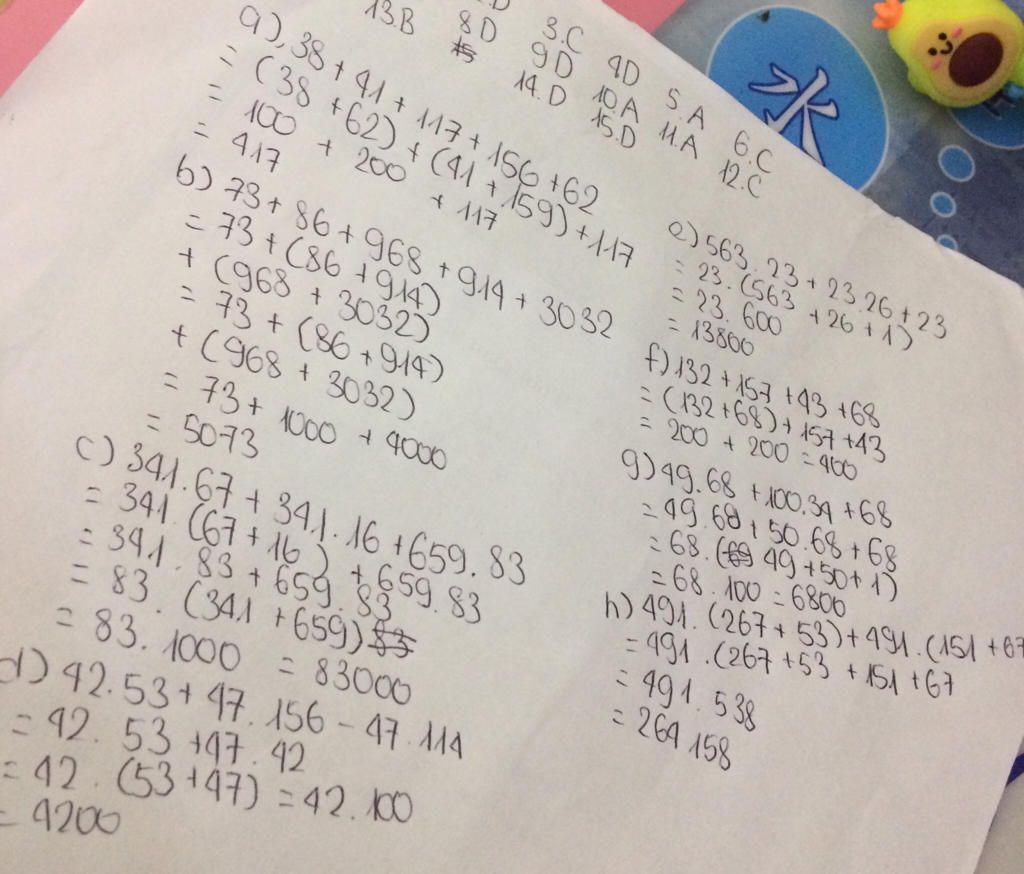 13.B 8D 3.C 4D 5.A 6.C
9D 10A 11.A 12.C
14.D 15.D
a) 38 + 41 + 117 + 156 + 62
= (38 + 62) + (41 + 159) + 117
= 100 + 200 + 117
= 417
b) 73 + 86 + 968 + 914 + 3032
= 73 + (86 + 914)
+ (968 + 3032)
= 73 + (86 + 914)
+ (968 + 3032)
= 73 + 1000 + 4000
= 5073
c) 341.67 + 341.16 + 659.83
= 341.(67 + 16) + 659.83
= 341.83 + 659.83
= 83.(341 + 659)
= 83.1000 = 83000
d) 42.53 + 47.156 - 47.114
= 42.53 + 47.42
= 42.(53 + 47) = 42.100
= 4200
e) 563.23 + 23.26 + 23
= 23.(563 + 26 + 1)
= 23.600
= 13800
f) 132 + 157 + 43 + 68
= (132 + 68) + 157 + 43
= 200 + 200 = 400
g) 49.68 + 100.34 + 68
= 49.68 + 50.68 + 68
= 68.(49 + 50 + 1)
= 68.100 = 6800
h) 491.(267 + 53) + 491.(151 + 67
= 491.(267 + 53 + 151 + 67
= 491.538
= 264158
水